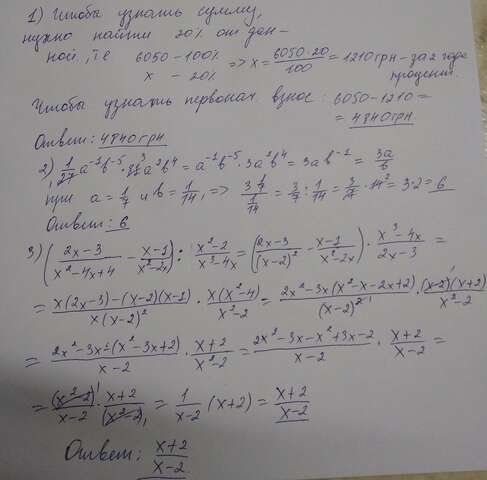 1) Чтобы узнать сумму,
нужно найти 20% от дан-
ной, т.е 6050 – 100%
x – 20% => x = 6050·20/100 = 1210 грн – за 2 года
процент.
Чтобы узнать первонач. взнос: 6050–1210 =
= 4840 грн
Ответ: 4840 грн.
2) 1/27 a⁻³b⁻⁵ · 81³a²b⁴ = a⁻¹b⁻⁵ · 3a²b⁴ = 3ab⁻¹ = 3a/b
при a = 1/7 и b = 1/14, => (3·1/7)/(1/14) = 3/7 : 1/14 = 3/7 · 14² = 3·2 = 6
Ответ: 6
3) ((2x–3)/(x²–4x+4) – (x–1)/(x²–2x)) : (x²–2)/(x³–4x) = ((2x–3)/(x–2)² – (x–1)/(x²–2x)) · (x³–4x)/(2x–3) =
= (x(2x–3)–(x–2)(x–1))/(x(x–2)²) · (x(x²–4))/(x²–2) = (2x²–3x(x²–x–2x+2))/(x–2)² · ((x–2)(x+2))/(x²–2)
= (2x²–3x–(x²–3x+2))/(x–2) · (x+2)/(x²–2) = (2x²–3x–x²+3x–2)/(x–2) · (x+2)/(x–2) =
= (x²–2)/(x–2) · (x+2)/(x²–2) = 1/(x–2) (x+2) = (x+2)/(x–2)
Ответ: (x+2)/(x–2)